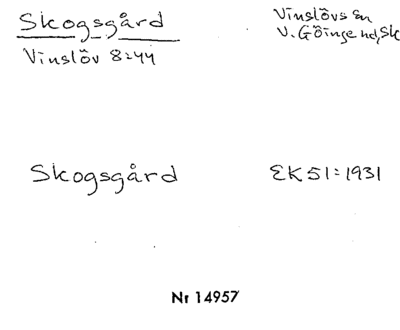 Skogsgård
Vinslövs sn
V. Göinge hd, Sk
Vinslöv 8:44
Skogsgård
EK 51:1931
Nr 14957